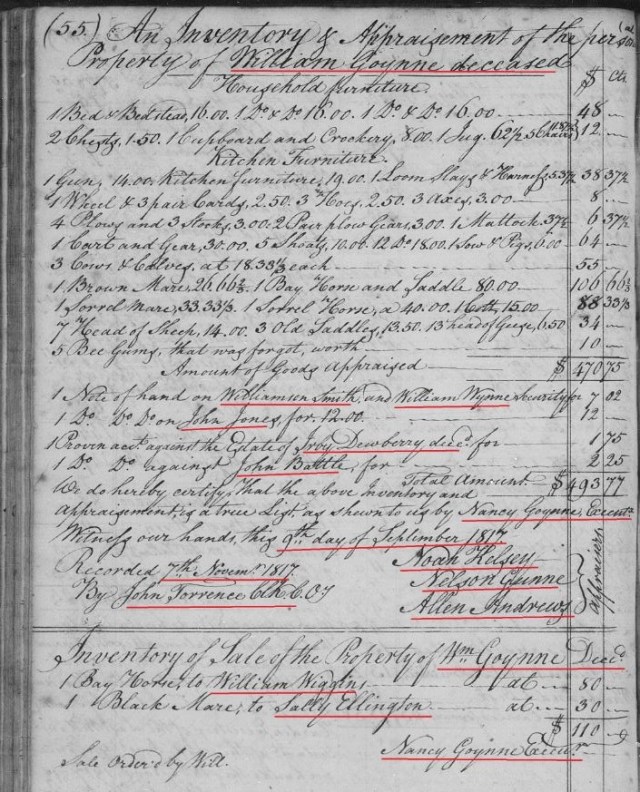 (55.) An Inventory & Appraisement of the person (al
Property of William Goynne deceased
Household furniture $ cts
1 Bed & Bedstead, 16.00. 1 Do & Do 16.00 1 Do & Do 16.00 48 —
2 Chests, 1.50. 1 Cupboard and Crockery, 8.00. 1 Jug. 62½ 5 Chairs 1.87½ } 12 —
Kitchen Furniture
1 Gun, 14.00. Kitchen furniture, 19.00. 1 Loom Slays & Harness, 5.37½ 38 37½
1 Wheel & 3 pair Cards, 2.50. 3 Hoes, 2.50. 3 Axes, 3.00 — 8 —
4 Plows and 3 Stocks, 3.00. 2 Pair plow Gears, 3.00. 1 Mattock .37½ 6 37½
1 Cart and Gear, 30.00. 5 Shoats, 10.00. 12 Do 18.00. 1 Sow & Pigs, 6.00 64 —
3 Cows & Calves, at 18.33⅓ each 55 —
1 Brown Mare, 26.66⅔. 1 Bay Horse and Saddle 80.00 — 106 66⅔
1 Sorrel Mare, 33.33⅓. 1 Sorrel Horse, a 40.00. 1 Colt, 15.00 88 33⅓
7 Head of Sheep, 14.00. 3 Old Saddles, 13.50. 13 head of Geese, 6.50 34 —
5 Bee Gums, that was forgot, worth 10 —
Amount of Goods Appraised $ 470 75
1 Note of hand on Williamson Smith and William Wynne Security for 7 02
1 Do. Do. Do on John Jones, for 12.00 12 —
1 Proven acct. against the Estate of Irby Dewberry decd. for 1 75
1 Do. Do against John Battle, for 2 25
Total Amount. $ 493 77
We do hereby certify, that the above Inventory and
Appraisement, is a true List, as shown to us by Nancy Goynne, Execut
Witness our hands, this 9th day of September 1817
Recorded 7th Novemr. 1817 Noah Kelsey
By John Torrence Clk. C.O. Nelson Gunne
Allen Andrews } Appraisers
Inventory of Sale of the Property of Wm Goynne Decd
1 Bay Horse, to William Wiggins — at — 80 —
1 Black Mare, to Sally Ellington — at — 30 —
$ 110 —
Nancy Goynne Execur.
Sale Order'd by Will.